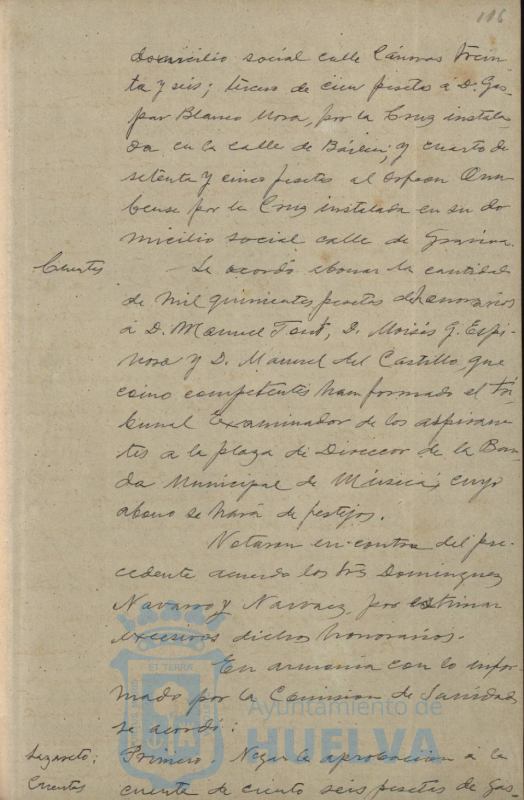 116
domicilio social calle Cánovas trein-
ta y seis; tercero de cien pesetas a D. Gas-
par Blanco Mora, por la Cruz instala-
da en la calle de Bailén, y cuarto de
setenta y cinco pesetas al orfeon Onu-
bense por la Cruz instalada en su do
micilio social calle de Gravina.
Cuentas
Se acordó abonar la cantidad
de mil quinientas pesetas de honorarios
á D. Manuel Font, D. Moisés G. Espi-
nosa y D. Manuel del Castillo, que
como competentes han formado el tri-
bunal examinador de los aspiran-
tes a la plaza de Director de la Ban-
da Municipal de Música, cuyo
abono se hará de festejos.
Votaron en contra del pre-
cedente acuerdo los Srs Dominguez
Navarro y Narvaez, por estimar
excesivos dichos honorarios.
En armonia con lo infor-
mado por la Comision de Sanidad
se acordó:
Lazareto;
Cuentas
Primero. Negar la aprobacion á la
cuenta de ciento seis pesetas de gas-
ET TERRA
Ayuntamiento de
HUELVA